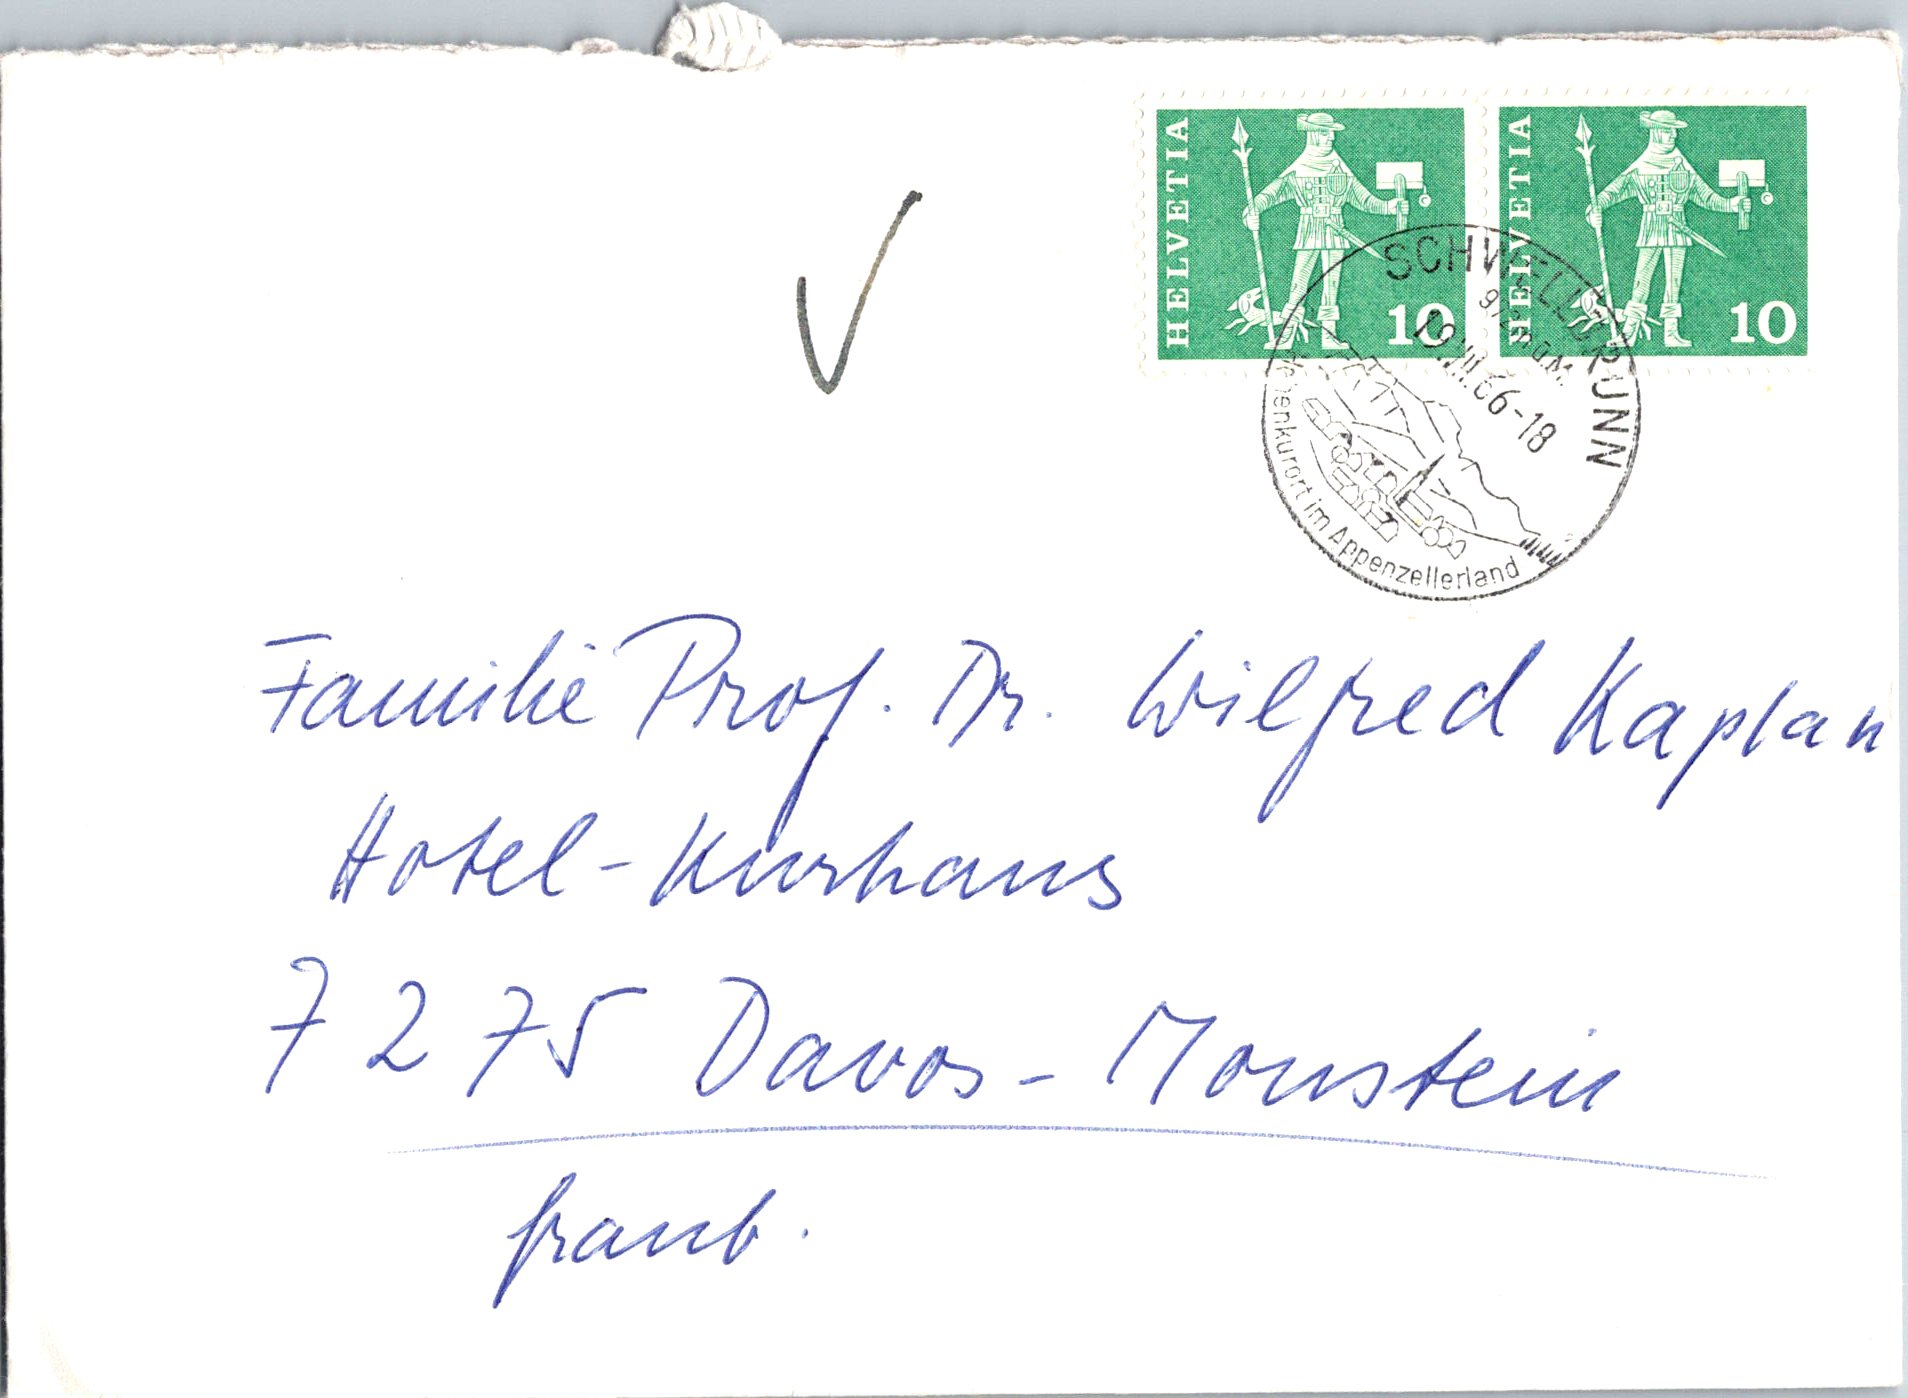 HELVETIA 10
HELVETIA 10
SCHWELLBRUNN
972 m ü.M.
19.VII.66-18
Höhenkurort im Appenzellerland
Familie Prof. Dr. Wilfred Kaplan
Hotel-Kurhaus
7275 Davos-Monstein
fraub.